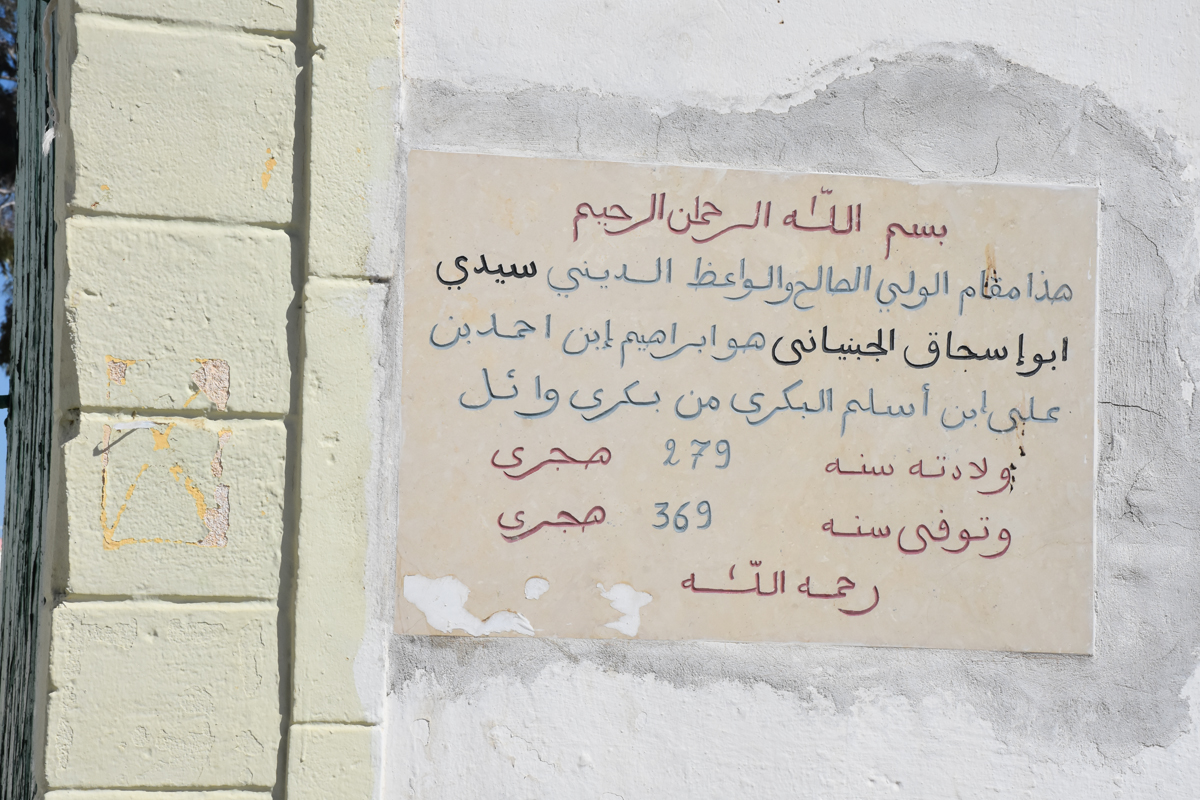 بسم اللّٰه الرحمان الرحيم
هذا مقام الولي الصالح والواعظ الديني سيدي
ابو إسحاق الجبنياني هو ابراهيم إبن احمد بن
علي ابن أسلم البكري من بكري وائل
ولادته سنه 279 هجري
وتوفى سنه 369 هجري
رحمه اللّٰه